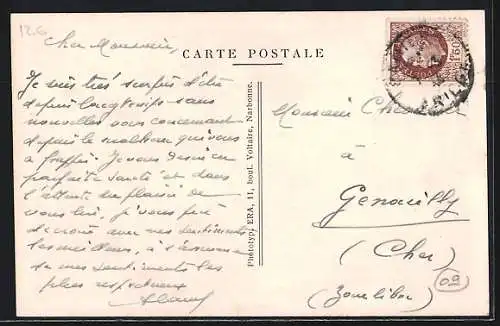 12.6
Cher Monsieur,
CARTE POSTALE
1F50
Je suis très surpris d'être
depuis longtemps sans
nouvelles vous concernant
depuis le malheur qui vous
a frappé. Je vous désire en
parfaite santé et dans
l'attente du plaisir de
vous lire, je vous prie
de croire avec mes sentiments
les meilleurs, à l'assurance
de mes sentiments les
plus respectueux
Phototypie ERA, 11, boul. Voltaire, Narbonne.
Monsieur
à
Genouilly
(Cher)
(Zone libre)
09